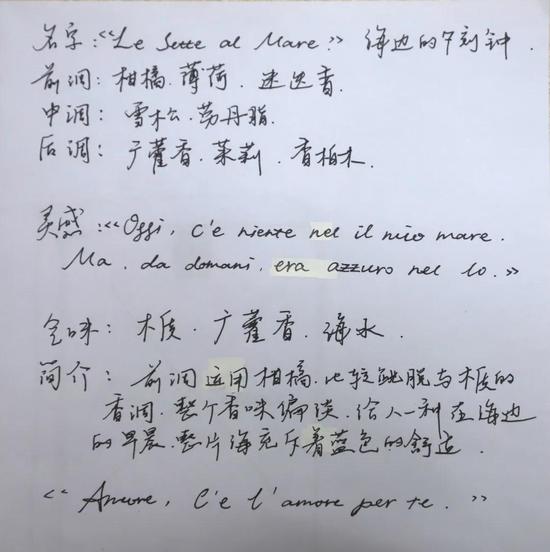 名字:《Le Sette al Mare.》 海边的7刻钟.
前调: 柑橘. 薄荷. 迷迭香.
中调: 雪松. 劳丹脂.
后调: 广藿香. 茉莉. 香柏木.
灵感:《Oggi, c'e niente nel il mio mare.
Ma, da domani, era azzuro nel lo.》
全味: 木质. 广藿香. 海水.
简介: 前调运用柑橘. 比较跳脱与木质的
香调. 整个香味偏淡. 给人一种在海边
的早晨. 整片海充斥着蓝色的舒适.
《 Amore, C'e l'amore per te. 》